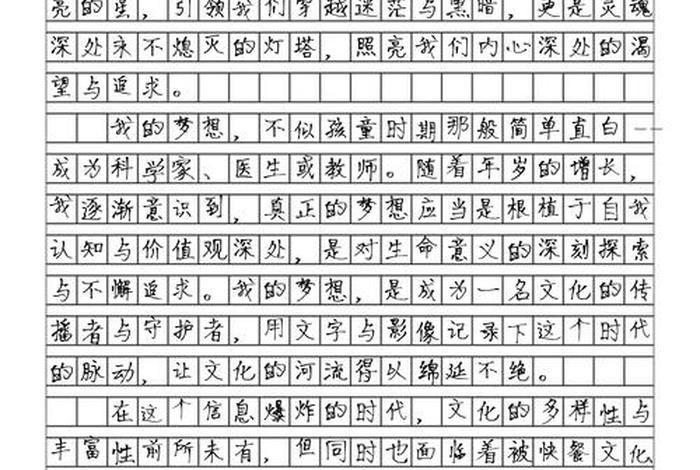 亮的星，引领我们穿越迷茫与黑暗，更是灵魂
深处永不熄灭的灯塔，照亮我们内心深处的渴
望与追求。
我的梦想，不似孩童时期那般简单直白——
成为科学家、医生或教师。随着年岁的增长，
我逐渐意识到，真正的梦想应当是根植于自我
认知与价值观深处，是对生命意义的深刻探索
与不懈追求。我的梦想，是成为一名文化的传
播者与守护者，用文字与影像记录下这个时代
的脉动，让文化的河流得以绵延不绝。
在这个信息爆炸的时代，文化的多样性与
丰富性前所未有，但同时也面临着被快餐文化